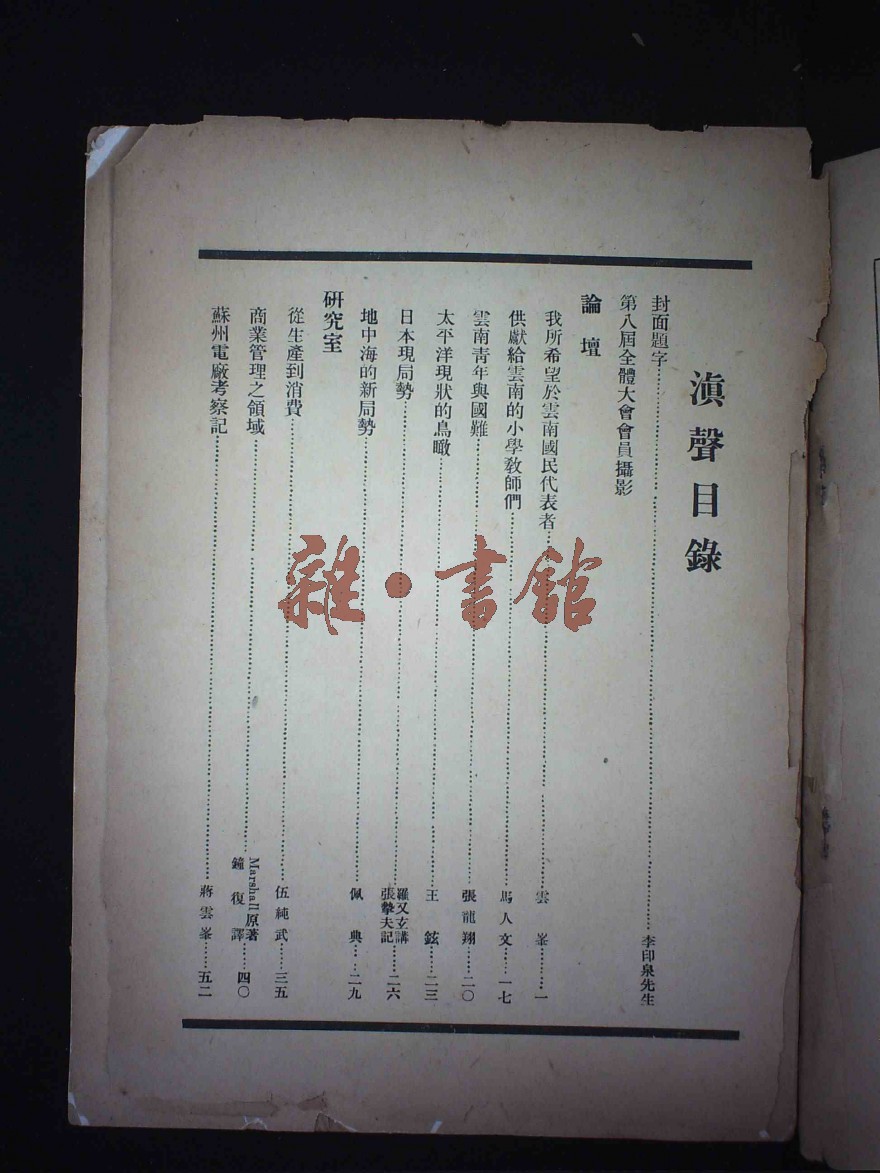 滇聲目錄
封面題字……李印泉先生
第八屆全體大會會員攝影
論壇
我所希望於雲南國民代表者……雲峯……一
供獻給雲南的小學教師們……馬人文……一七
雲南青年與國難……張龍翔……二〇
太平洋現狀的鳥瞰……王鉉……二三
日本現局勢……羅又玄講 張摯夫記……二六
地中海的新局勢……佩典……二九
研究室
從生產到消費……伍純武……三五
商業管理之領域……Marshall原著 鐘復譯……四〇
蘇州電廠考察記……蔣雲峯……五二
雜·書館